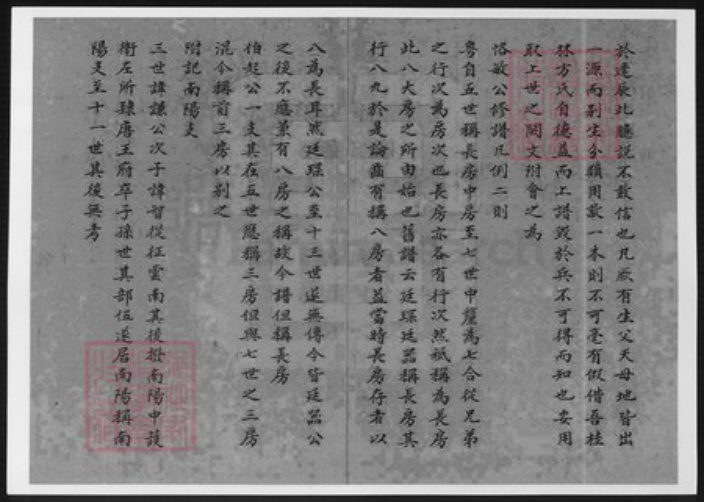 於遼辰此臆說不敢信也凡厥有生父天母地皆出
一源而別生分類用敬一本則不可毫有假借吾桂
林方氏自德益而上譜毀於兵不可得而知也安用
取上世之闕文附會之為
恪敏公修譜凡例二則
粵自五世稱長房中房至七世中釐為七合從兄弟
之行次為房次也長房亦各有行次然祗稱為長房
此八大房之所由始也舊譜云廷璨廷器稱長房其
行八九於是論齒有稱八房者蓋當時長房存者以
八為長耳然廷璨公至十三世遂無傳今皆廷器公
之後不應兼有八房之稱故今譜但稱長房
伯起公一支其在五世應稱三房但與七世之三房
混今稱前三房以別之
附記南陽支
三世諱謙公次子諱智從征雲南其後撥南陽中護
衛左所隸唐王府卒子孫世其部伍遂居南陽稱南
陽支至十一世其後無考